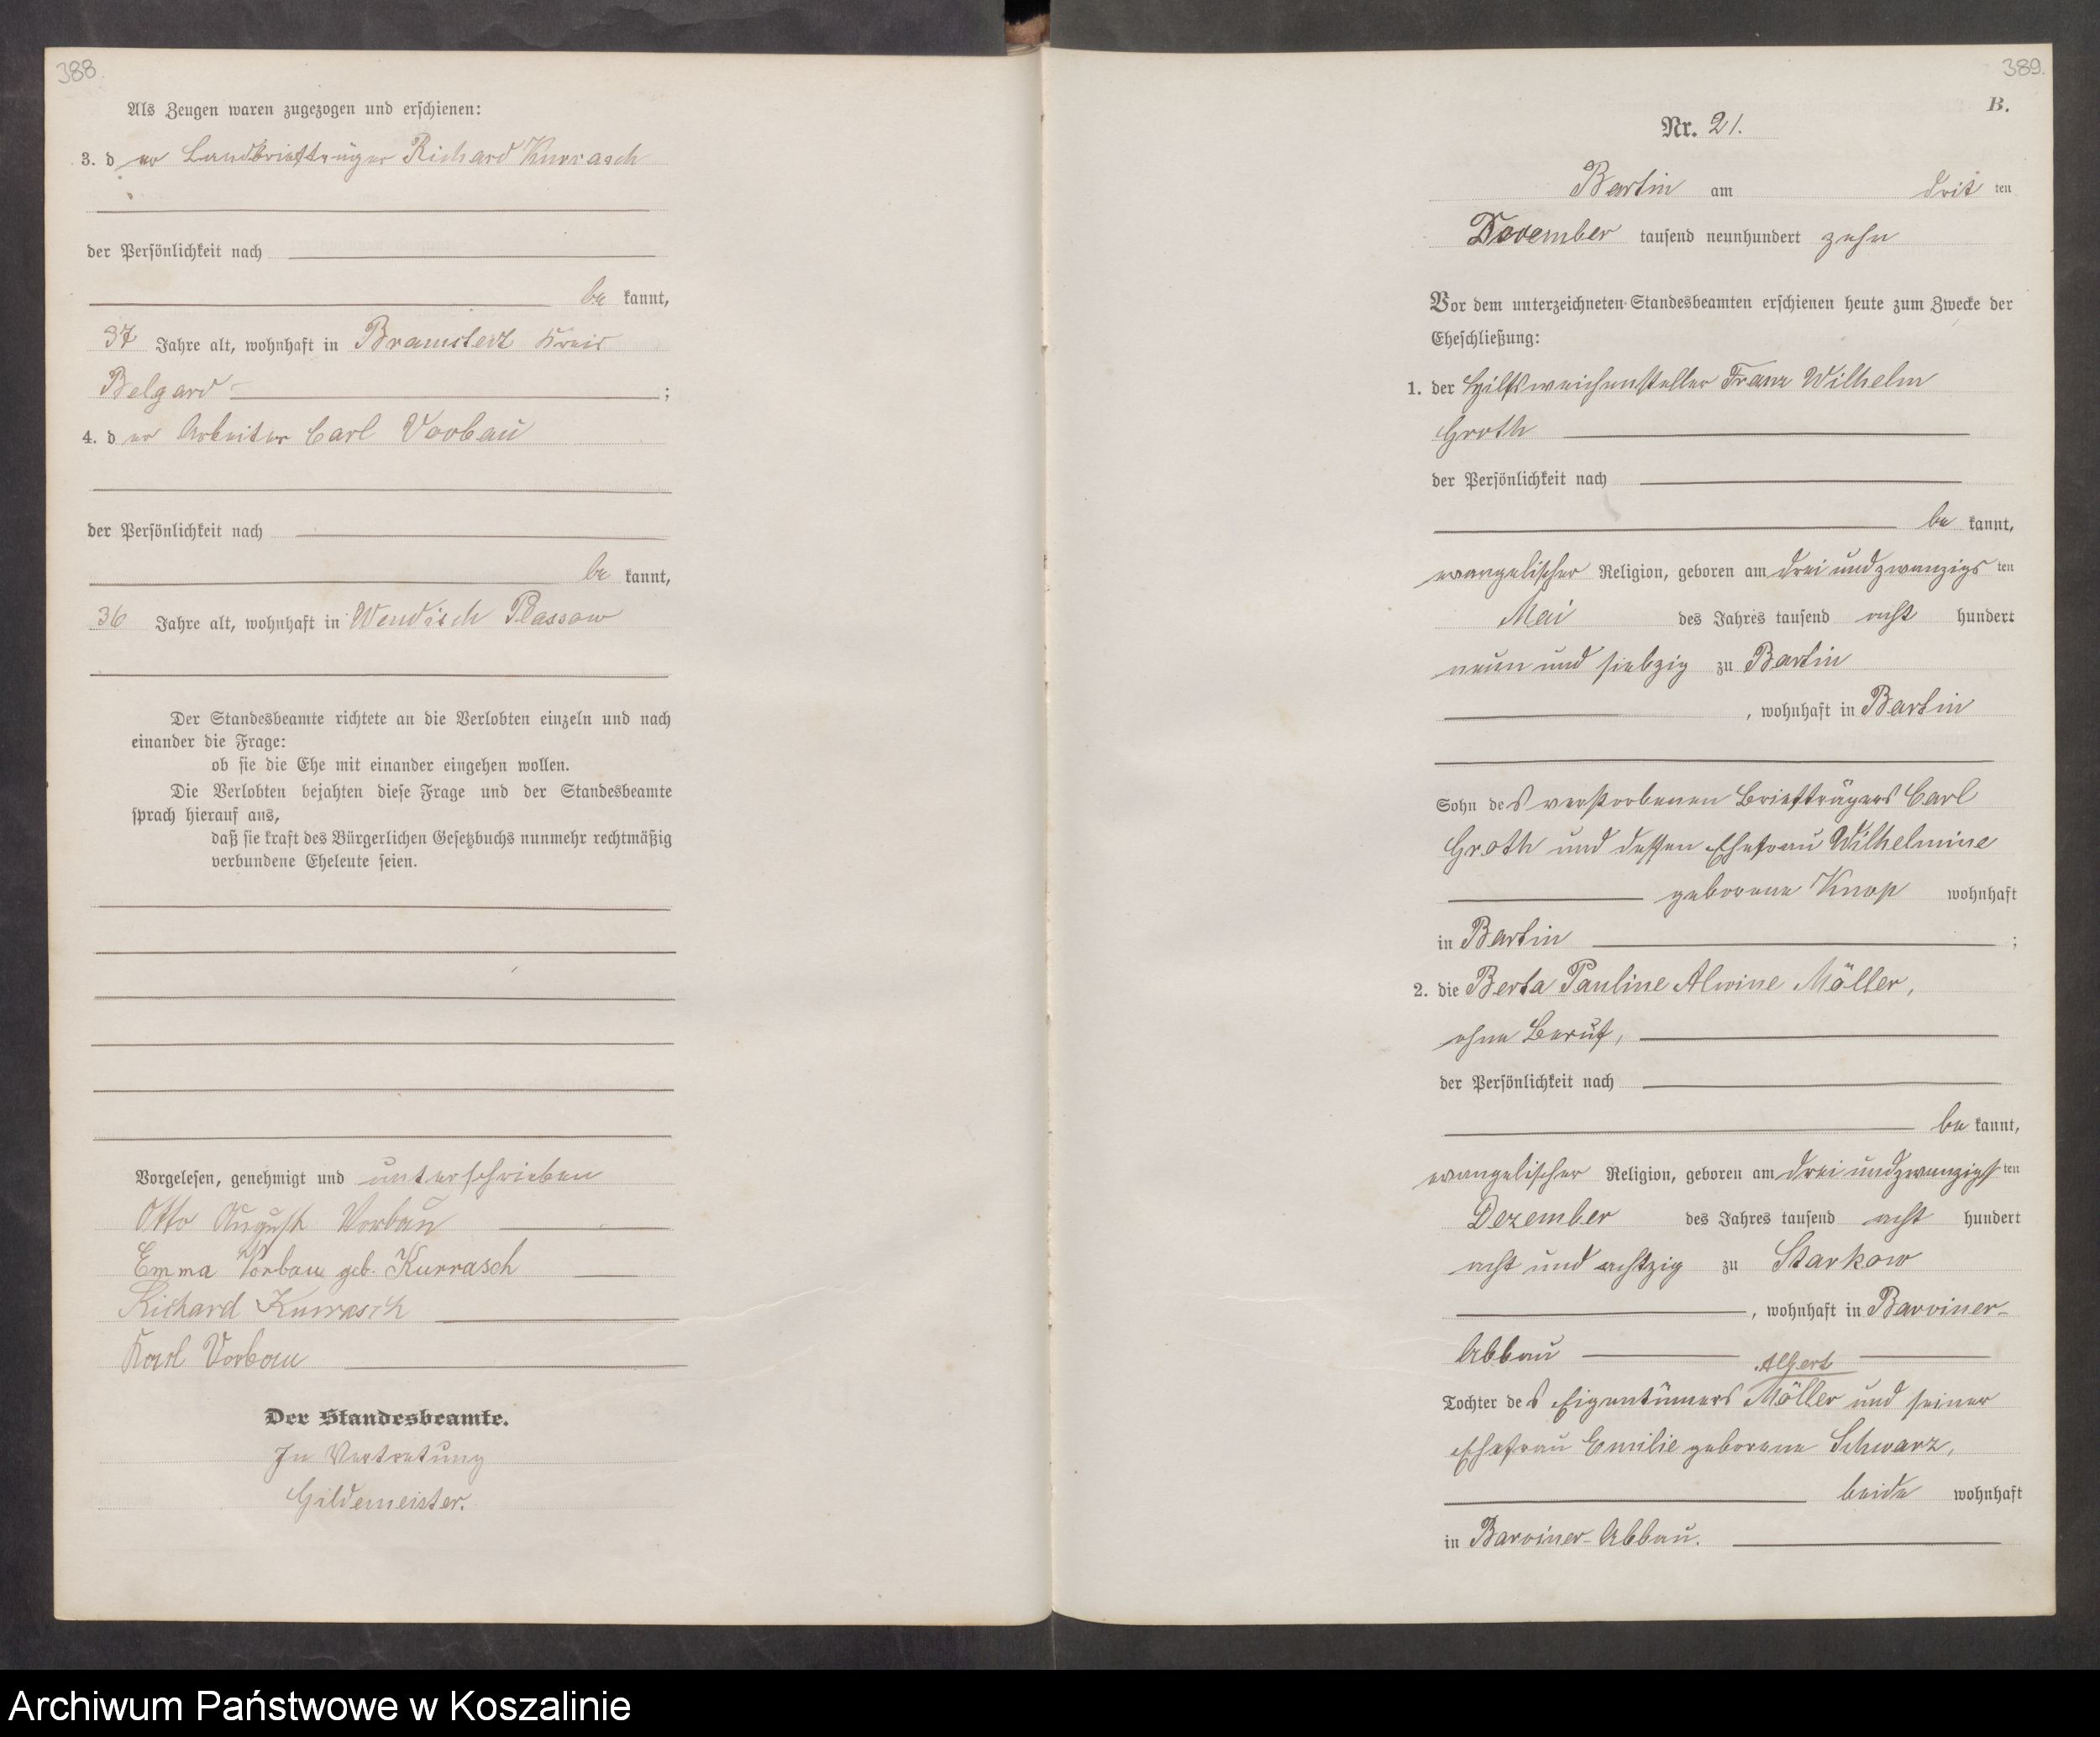 388.
Als Zeugen waren zugezogen und erschienen:
3. der Landbriefträger Richard Kurrasch
der Persönlichkeit nach
be kannt,
37 Jahre alt, wohnhaft in Kreis
Belgard ;
4. der Arbeiter Carl Vorbau
der Persönlichkeit nach
be kannt,
36 Jahre alt, wohnhaft in Wendisch Plassow
Der Standesbeamte richtete an die Verlobten einzeln und nach
einander die Frage:
ob sie die Ehe mit einander eingehen wollen.
Die Verlobten bejahten diese Frage und der Standesbeamte
sprach hierauf aus,
daß sie kraft des Bürgerlichen Gesetzbuchs nunmehr rechtmäßig
verbundene Eheleute seien.
Vorgelesen, genehmigt und unterschrieben
Otto August Vorbau
Emma Vorbau geb. Kurrasch
Richard Kurrasch
Karl Vorbau
Der Standesbeamte.
In Vertretung
Gildemeister.
389.
B.
Nr. 21.
Bartin am drit ten
tausend neunhundert zehn
Vor dem unterzeichneten Standesbeamten erschienen heute zum Zwecke der
Eheschließung:
1. der Hilfsweichensteller Franz Wilhelm
Groth
der Persönlichkeit nach
be kannt,
evangelischer Religion, geboren am dreiundzwanzigs ten
Mai des Jahres tausend acht hundert
neun und siebzig zu Bartin
, wohnhaft in Bartin
Sohn des verstorbenen Briefträgers Carl
Groth und dessen Ehefrau Wilhelmine
geborene Knop wohnhaft
in Bartin ;
2. die Berta Pauline Alwine Möller,
ohne Beruf,
der Persönlichkeit nach
be kannt,
evangelischer Religion, geboren am dreiundzwanzigs ten
Dezember des Jahres tausend acht hundert
acht und achtzig zu Starkow
, wohnhaft in Barviner-
Abbau
Albert
Tochter des Eigentümers Möller und seiner
Ehefrau Emilie geborene Schwarz,
beide wohnhaft
in Barviner-Abbau.
Archiwum Państwowe w Koszalinie